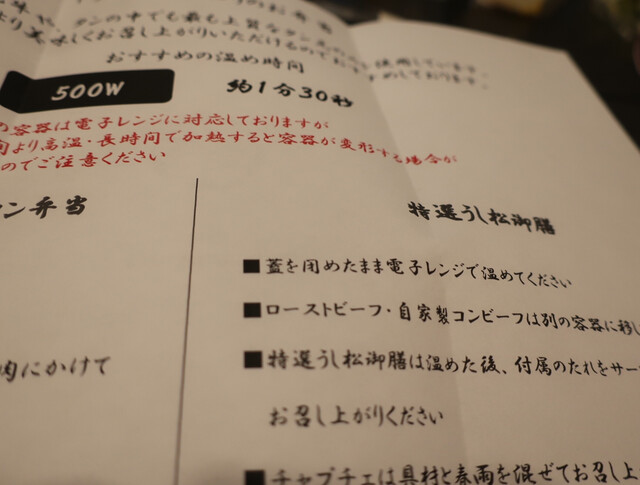 タンの中でも最も上質なタン
より美味しくお召し上がりいただけるのでおすすめしております。
おすすめの温め時間
500W 約1分30秒
の容器は電子レンジに対応しておりますが
間より高温・長時間で加熱すると容器が変形する場合が
のでご注意ください
タン弁当
肉にかけて
特選うし松御膳
■蓋を閉めたまま電子レンジで温めてください
■ローストビーフ・自家製コンビーフは別の容器に移し
■特選うし松御膳は温めた後、付属のたれをサー
お召し上がりください
■チャプチェは具材と春雨を混ぜてお召し上